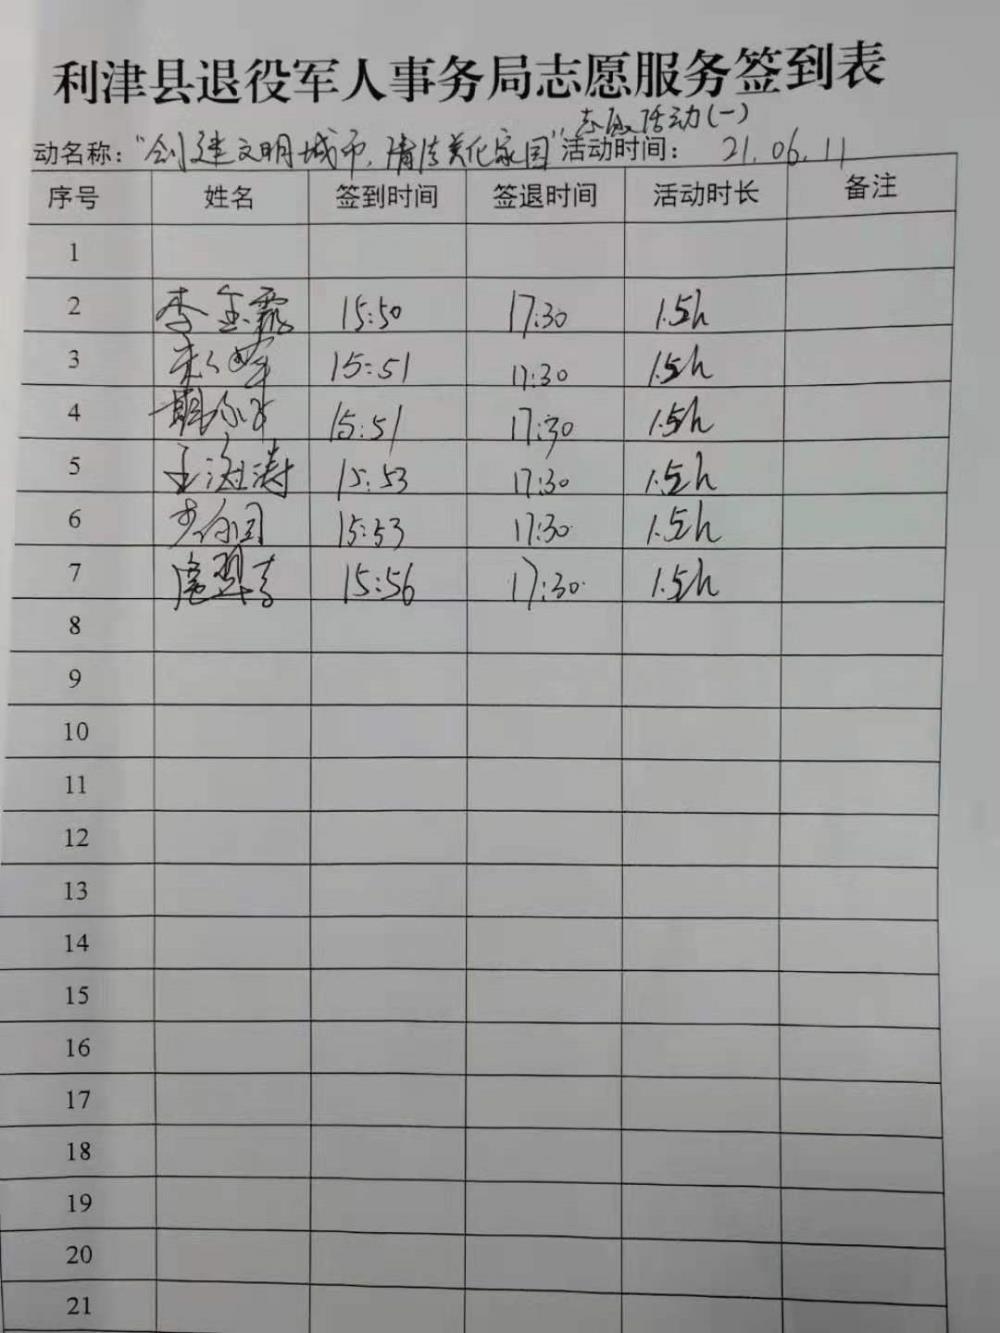 利津县退役军人事务局志愿服务签到表
志愿活动(一)
动名称："创建文明城市，清洁美化家园" 活动时间： 21.06.11
序号 姓名 签到时间 签退时间 活动时长 备注
1
2 李 15:50 17:30 1.5h
3 15:51 17:30 1.5h
4 15:51 17:30 1.5h
5 王海涛 15:53 17:30 1.5h
6 15:53 17:30 1.5h
7 15:56 17:30 1.5h
8
9
10
11
12
13
14
15
16
17
18
19
20
21